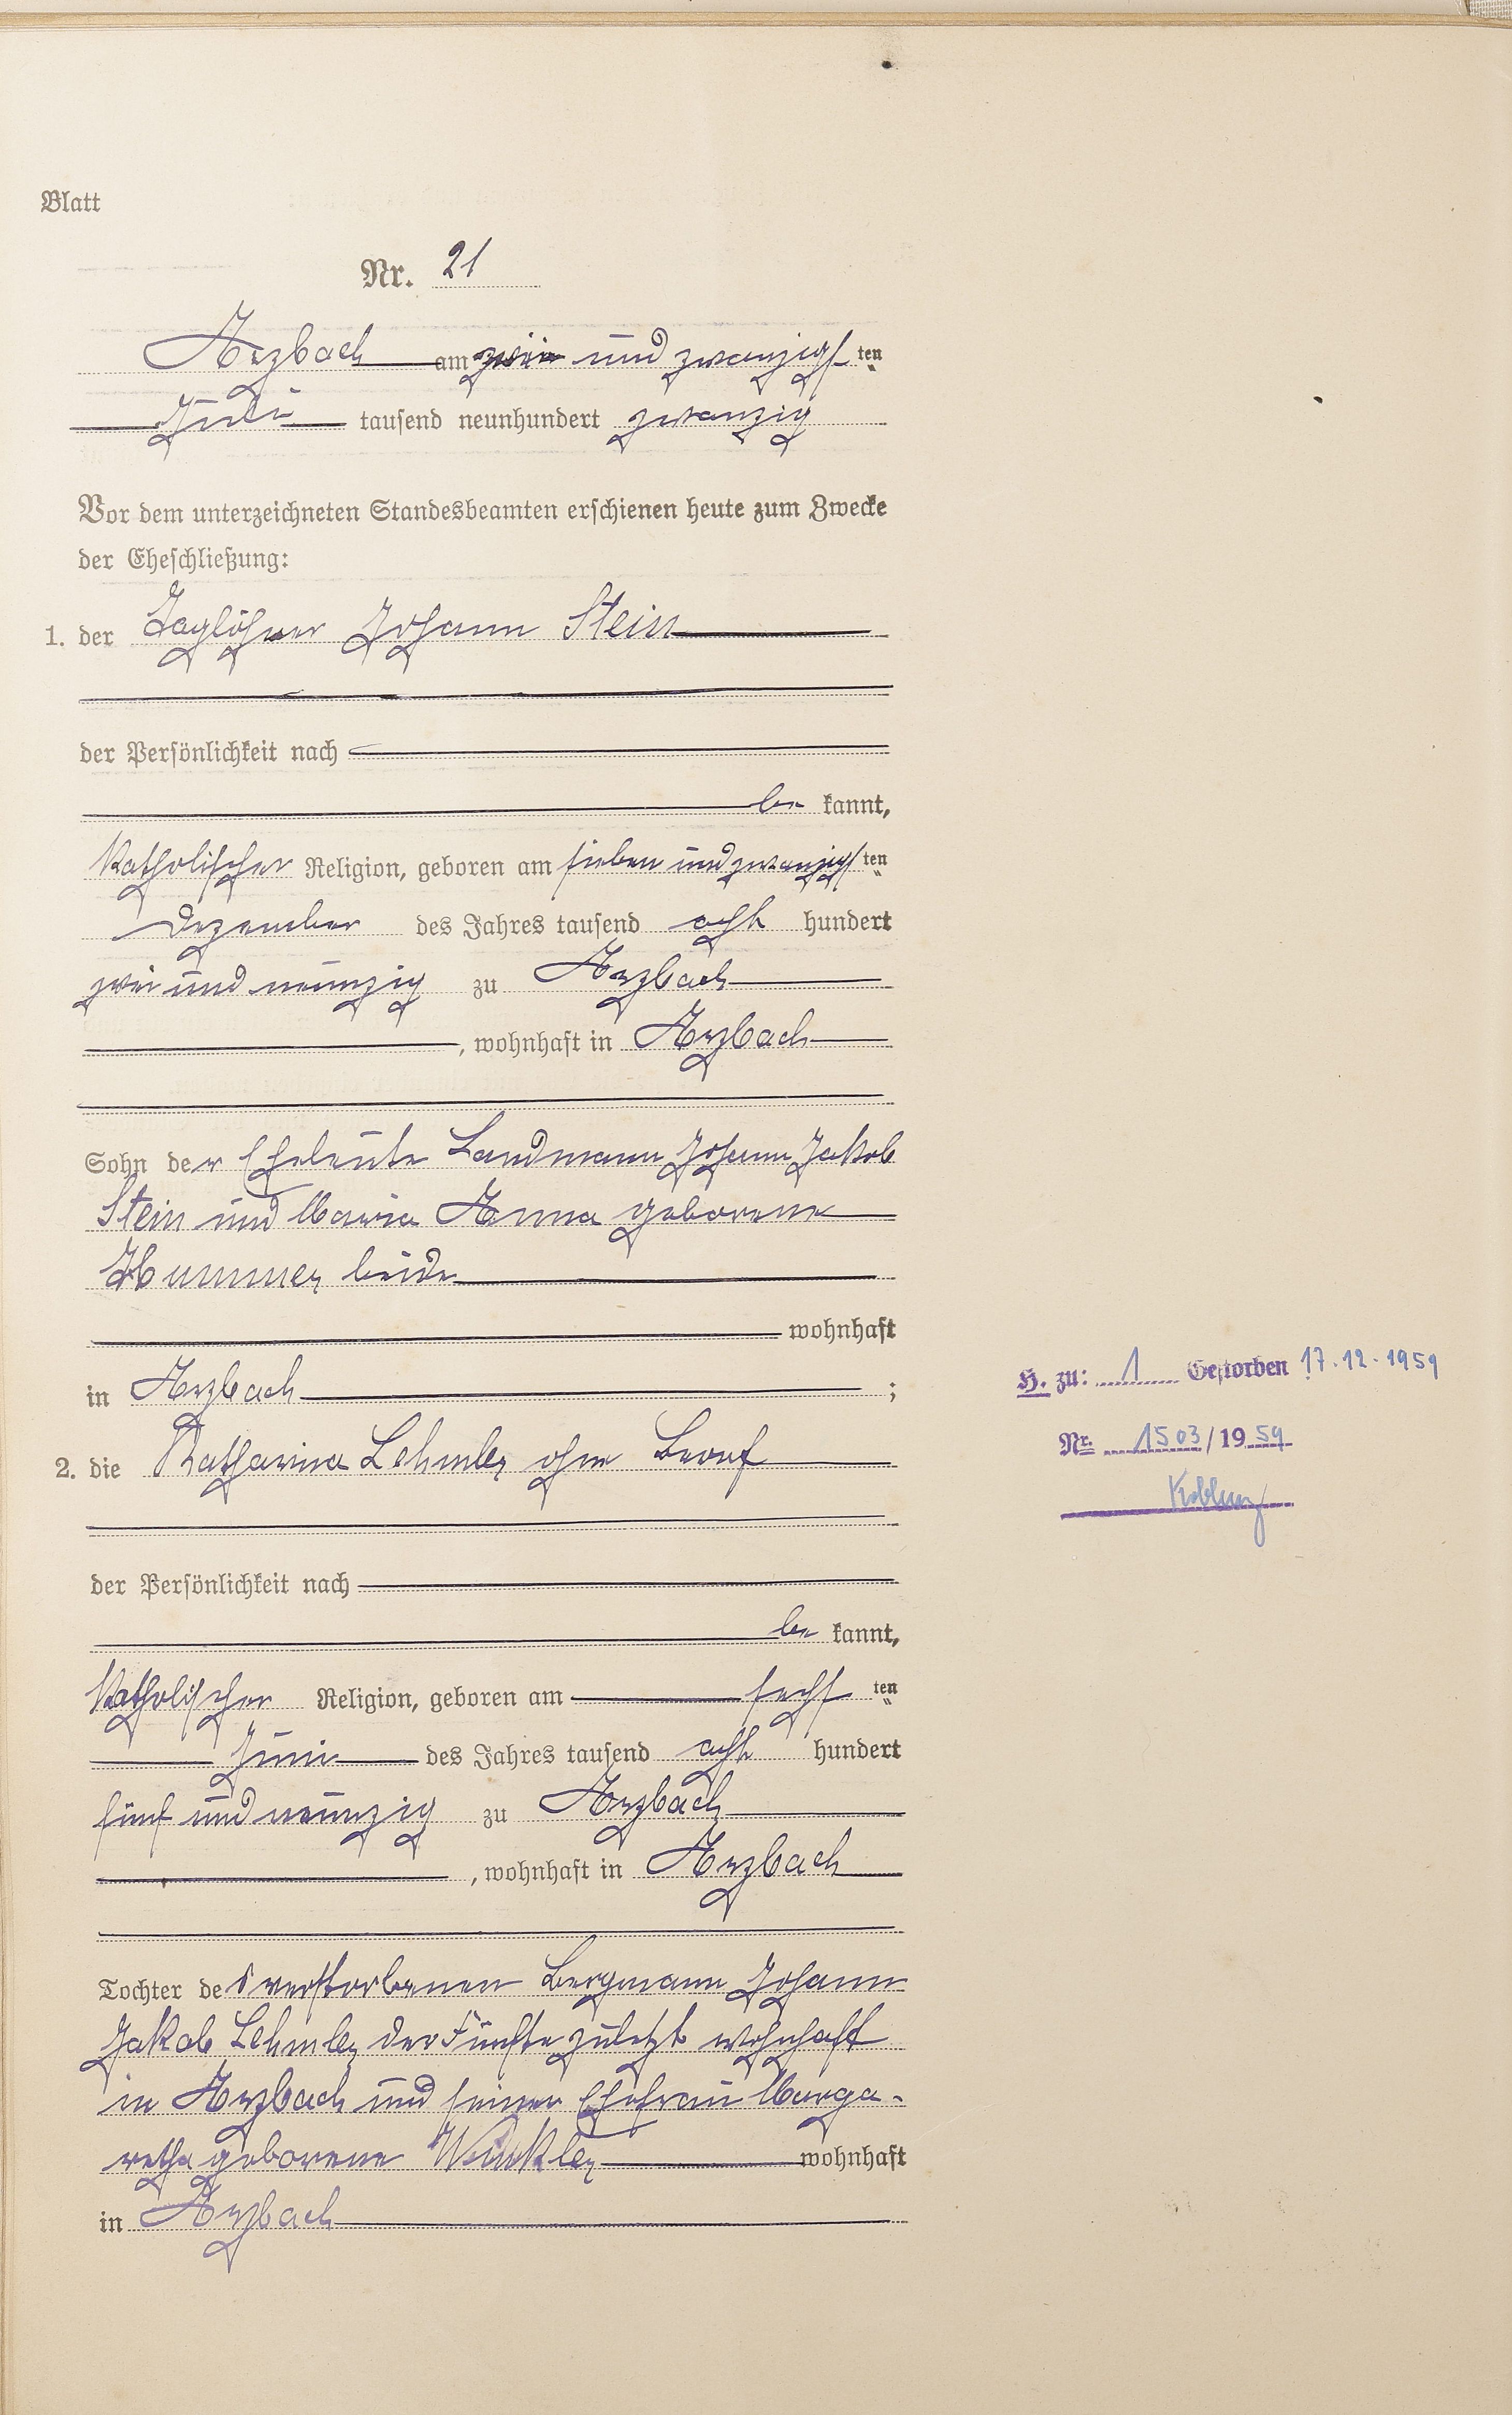 Blatt
Nr. 21
Arzbach am zwei und zwanzigsten
Juli tausend neunhundert zwanzig
Vor dem unterzeichneten Standesbeamten erschienen heute zum Zwecke
der Eheschließung:
1. der Taglöhner Johann Stein
der Persönlichkeit nach
be kannt,
Katholischer Religion, geboren am sieben und zwanzigsten
Dezember des Jahres tausend acht hundert
zwei und neunzig zu Arzbach
, wohnhaft in Arzbach
Sohn der Eheleute Landmann Johann Jakob
Stein und Maria Anna geborene
Hummer beide
wohnhaft
in Arzbach ;
2. die Katharina Lehmler ohne Beruf
der Persönlichkeit nach
be kannt,
Katholischer Religion, geboren am sechsten
Juni des Jahres tausend acht hundert
fünf und neunzig zu Arzbach
, wohnhaft in Arzbach
Tochter des verstorbenen Bergmann Johann
Jakob Lehmler der Fünfte zuletzt wohnhaft
in Arzbach und seiner Ehefrau Marga-
retha geborene Winkler wohnhaft
in Arzbach
H. zu: 1 Gestorben 17.12.1959
Nr. 1503/1959
Koblenz